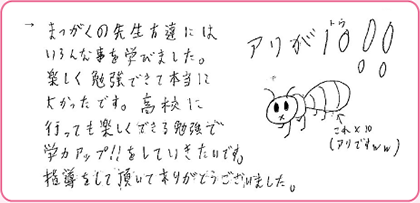 → まつがくの先生方達には
いろんな事を学びました。
楽しく勉強できて本当に
よかったです。高校に
行っても楽しくできる勉強で
学力アップ!!をしていきたいです。
指導をして頂いてありがとうございました。
トウ
アリが10!!
これ×10
(アリですww)